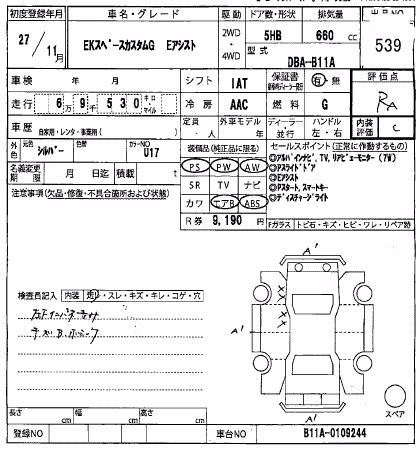 初度登録年月 車名・グレード 駆動 ドア数・形状 排気量
27/11月 EKスペースカスタムG Eアシスト 2WD・4WD 5HB 660 cc 539
型式 DBA-B11A
車検 年 月 シフト IAT 保証書 有・無 評価点
走行 6万9千530 キロ・マイル 冷房 AAC 燃料 G RA
車歴 自家用・レンタ・事業用( ) 定員 人 外車モデル 年 ディーラー・並行 ハンドル 左・右 内装評価 C
外色 元色 シルバー 色替 カラーNO U17
装備品(純正品に限る) セールスポイント(正常に作動するもの)
名義変更期限 月 日迄 積載 t
PS PW AW
◎アルパインナビ, TV, リアビューモニター(7W)
◎Pスライドドア
注意事項(欠品・修復・不具合箇所および状態)
SR TV ナビ
◎Eアシスト
◎Pスタート, スマートキー
カワ エアB ABS
◎ディスチャージライト
R券 9,190 円
Fガラス トビ石・キズ・ヒビ・ワレ・リペア跡
A'
検査員記入 内装 スレ・キズ・キレ・コゲ・穴
X
X
X
A'
A'
A'
スペア
長さ cm 幅 cm 高さ cm
登録NO 車台NO B11A-0109244